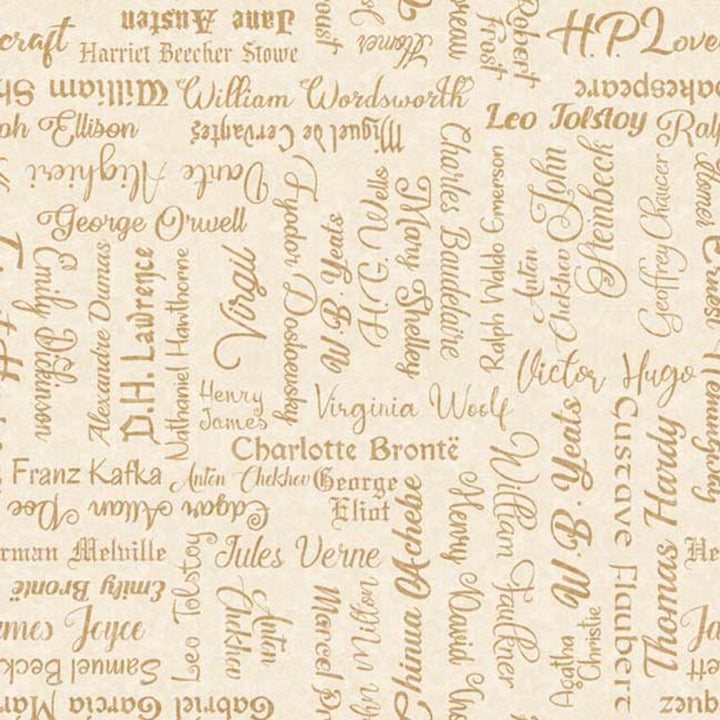 Jane Austen
craft
Harriet Beecher Stowe
oust
Homer
reau
Robert
Frost
H.P. Love
William Sh
akespeare
William Wordsworth
Leo Tolstoy
ph Ellison
Ral
Miguel de Cervantes
Dante Alighieri
George Orwell
Fyodor Dostoevsky
W. B. Yeats
H. G. Wells
Mary Shelley
Charles Baudelaire
Ralph Waldo Emerson
Anton
Chekhov
John
Steinbeck
Geoffrey Chaucer
Homer
Ernest Hemingway
Emily Dickinson
Alexandre Dumas
D.H. Lawrence
Nathaniel Hawthorne
Virgil
Henry
James
Victor Hugo
Virginia Woolf
Charlotte Brontë
Franz Kafka
Anton Chekhov
George
Eliot
Edgar Allan Poe
rman Melville
He
Jules Verne
Emily Brontë
mes Joyce
Ja
Samuel Beck
ett
Gabriel Garcia Mar
quez
Leo Tolstoy
Anton
Chekhov
Marcel Pr
hn Milton
Chinua Achebe
Henry David Tho
William Faulkner
W. B. Yeats
Agatha
Christie
Gustave Flaubert
Thomas Hardy